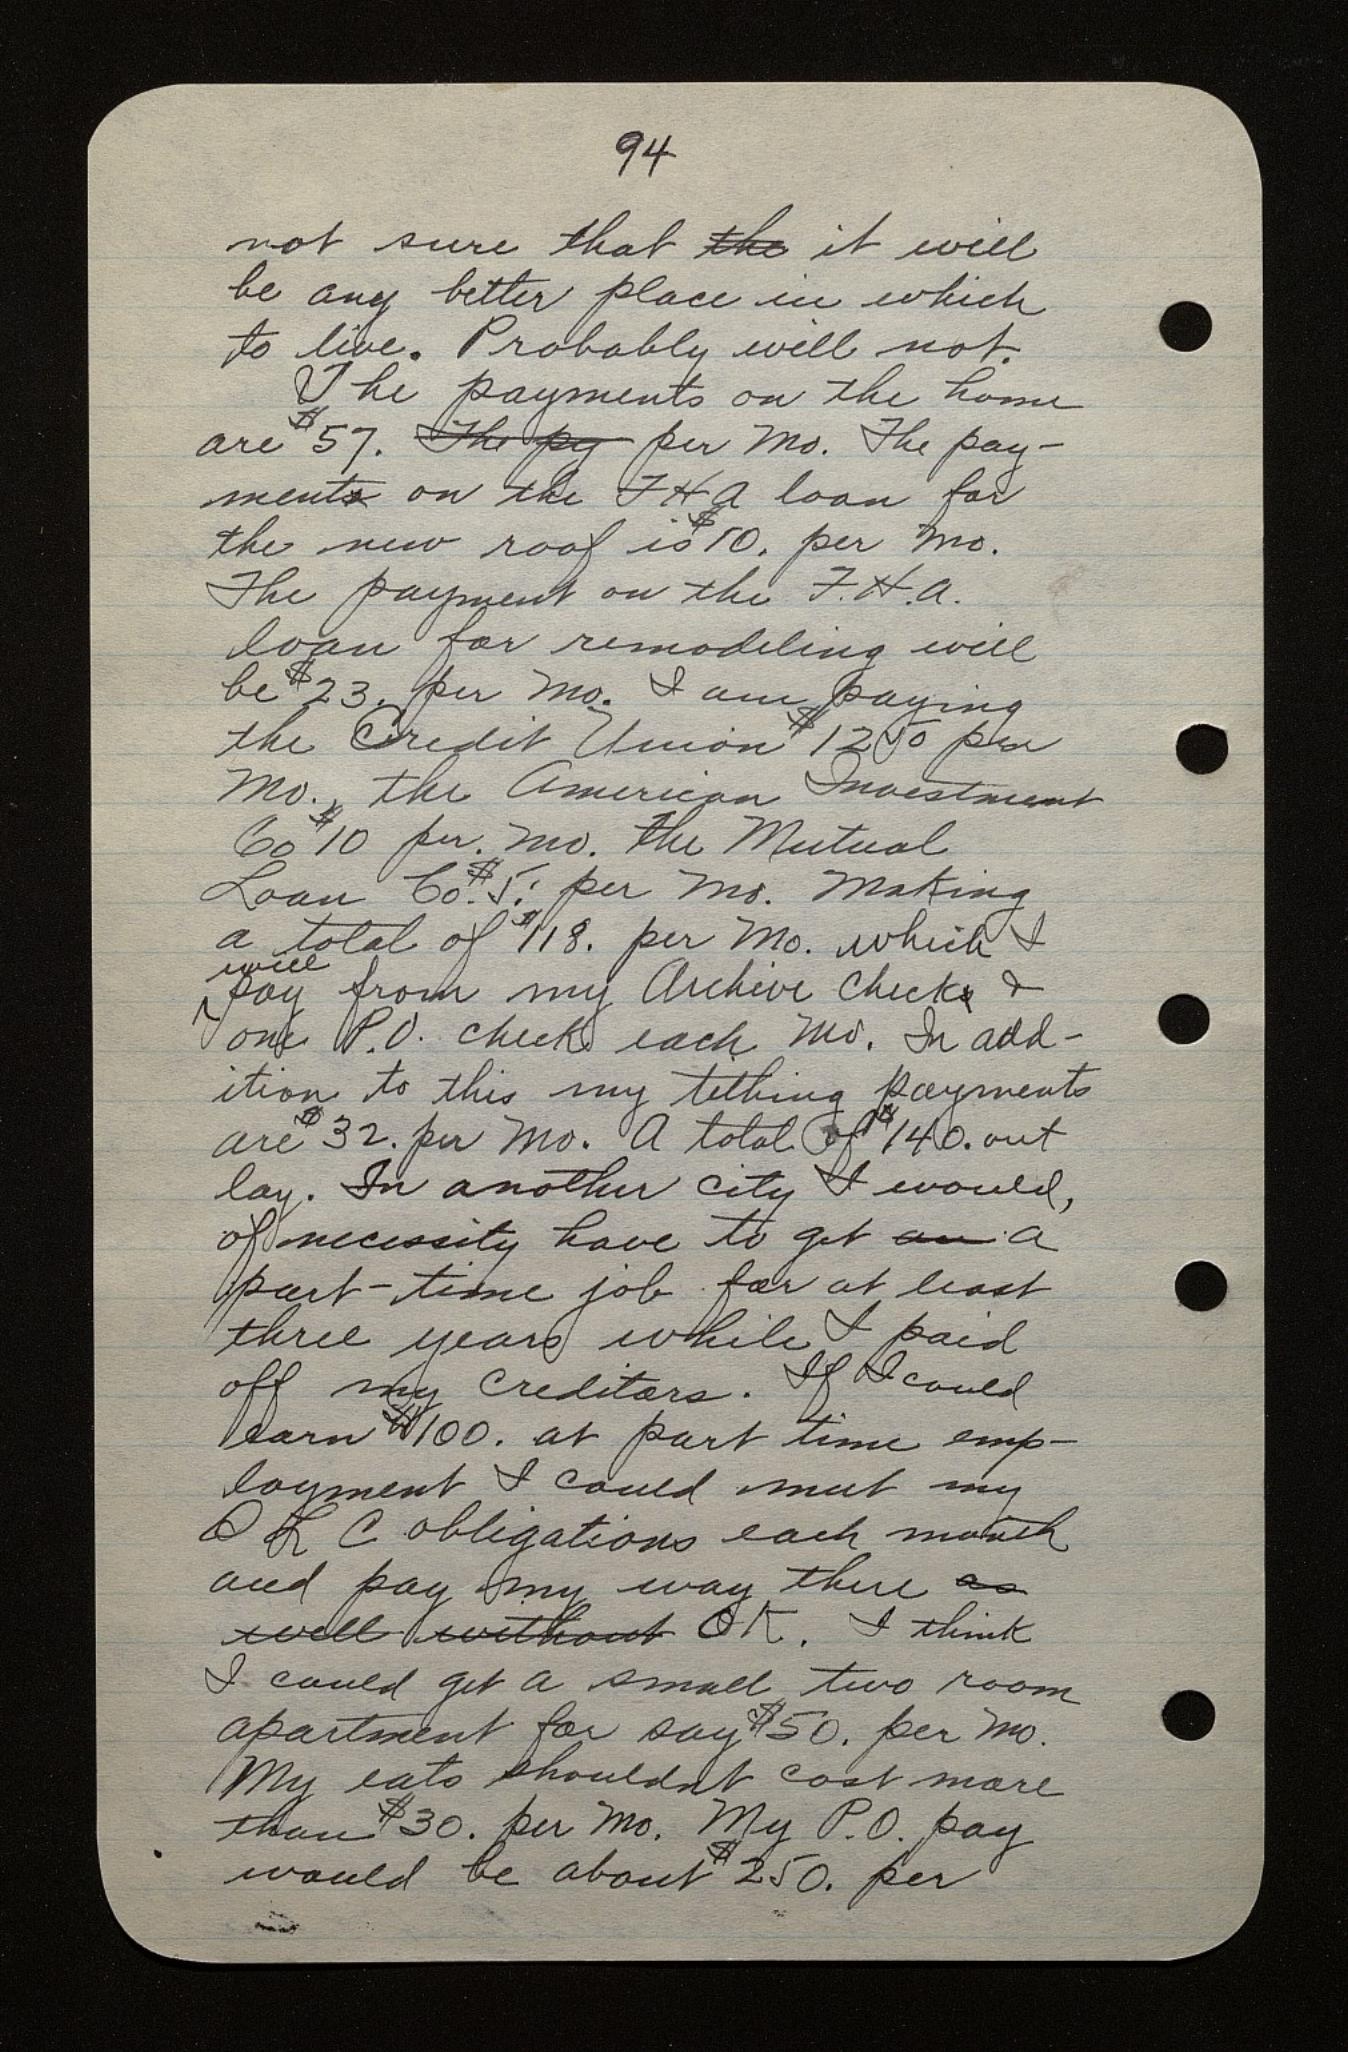 94
not sure that the it will
be any better place in which
to live. Probably will not.
The payments on the home
are $57. The py per Mo. The pay-
ments on the FHA loan for
the new roof is $10. per Mo.
The payment on the F.H.A.
loan for remodeling will
be $23. per Mo. I am paying
the Credit Union $1250 per
Mo., the American Investment
Co $10 per. Mo. the Mutual
Loan Co. $5. per Mo. Making
a total of $118. per Mo. which I
will
pay from my Archive checks &
one P.O. check each Mo. In add-
ition to this my tithing payments
are $32. per Mo. A total of $140. out
lay. In another city I would,
of necessity have to get an a
part-time job for at least
three years while I paid
off my creditors. If I could
earn $100. at part time emp-
loyment I could meet my
S L C obligations each month
and pay my way there as
well without OK. I think
I could get a small two room
apartment for say $50. per Mo.
My eats shouldnt cost more
than $30. per Mo. My P.O. pay
would be about $250. per